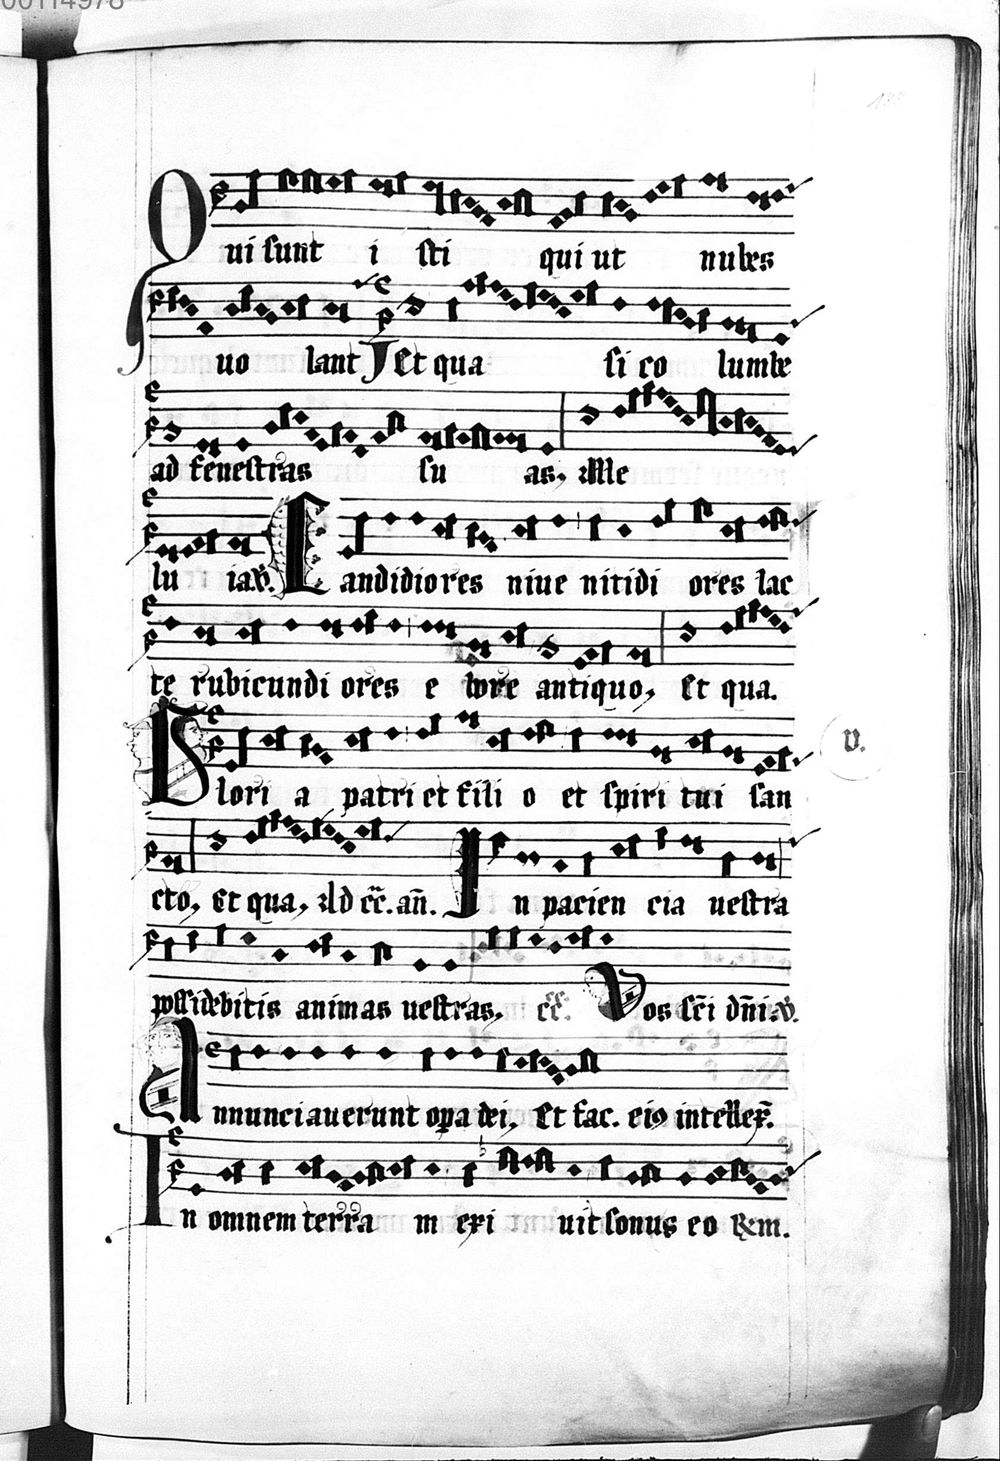 00114978
Qui sunt i sti qui ut nubes
uo lant Et qua si co lumbe
ad fenestras su as, Alle
lu ia. V. Candidiores niue nitidi ores lac
te rubicundi ores e bore antiquo, Et qua.
Glori a patri et fili o et spiri tui san
V.
cto, Et qua, Ad cc̄. an̄. In pacien cia uestra
possidebitis animas uestras, cc̄. Vos sc̄i dn̄i. V.
Annunciauerunt opa dei, Et fac. eiꝯ intellex̄.
In omnem terra m exi uit sonus eo rum.